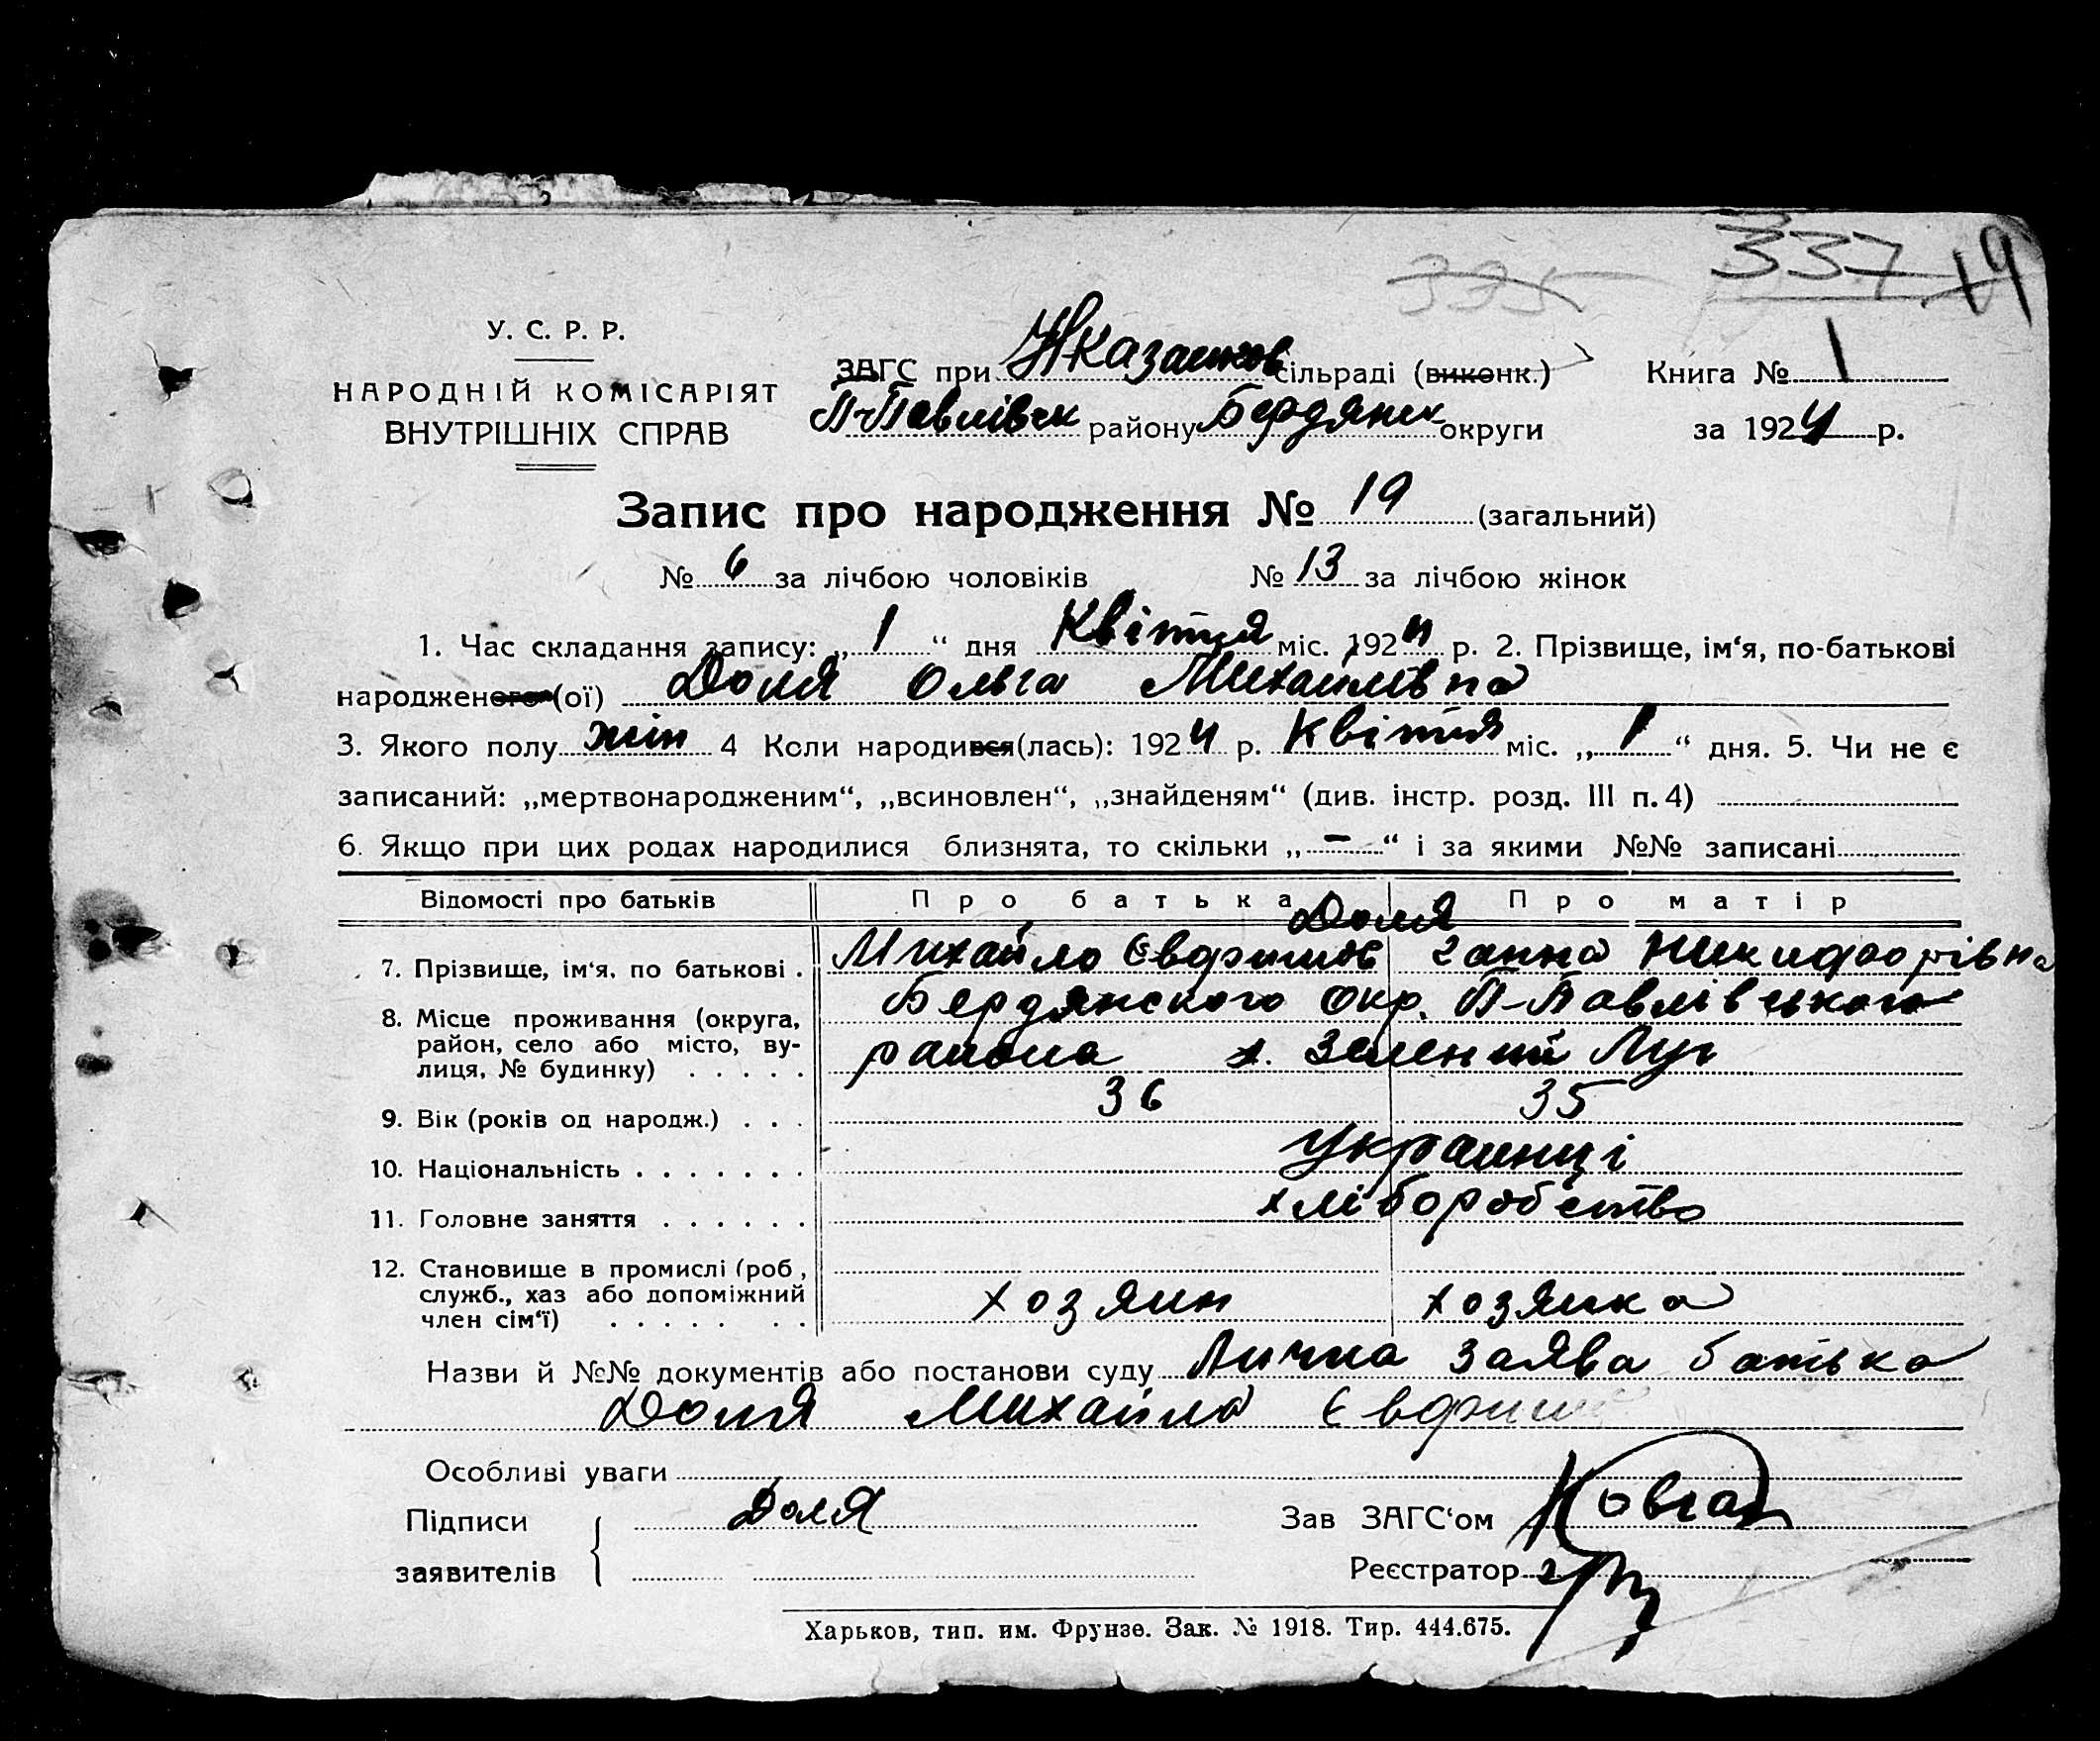 337 19
325
У. С. Р. Р.
НАРОДНІЙ КОМІСАРІЯТ
ВНУТРІШНІХ СПРАВ
ЗАГС при сільраді (виконк.)
П-Павлівськ району Бердянськ округи
Книга № 1
за 1924 р.
Запис про народження № 19 (загальний)
№ 6 за лічбою чоловіків № 13 за лічбою жінок
1. Час складання запису: „ 1 “ дня Квітня міс. 1924 р. 2. Прізвище, ім‘я, по-батькові
народженого (ої) Доля Ольга Михайлівна
3. Якого полу жін 4 Коли народився(лась): 1924 р. Квітня міс. „ 1 “ дня. 5. Чи не є
записаний: „мертвонародженим“, „всиновлен“, „знайденям“ (див. інстр. розд. III п. 4)
6. Якщо при цих родах народилися близнята, то скільки „ – “ і за якими №№ записані
Відомості про батьків Про батька Про матір
Доля
7. Прізвище, ім‘я, по батькові . Михайло Ганна Никифорівна
8. Місце проживання (округа, Бердянського Окр. П-Павлівського
район, село або місто, ву- района х. Зелений Луг
лиця, № будинку) . . . . .
9. Вік (років од народж.) . . . 36 35
10. Національність . . . . . . . Украинці
11. Головне заняття . . . . . . хлібороբство
12. Становище в промислі (роб,
служб., хаз або допоміжний хозяин хозяйка
член сім‘ї) . . . . . . .
Назви й №№ документів або постанови суду Лична заява батька
Доля Михайла
Особливі уваги
Підписи Доля Зав ЗАГС‘ом
заявителів Реєстратор
Харьков, тип. им. Фрунзе. Зак. № 1918. Тир. 444.675.